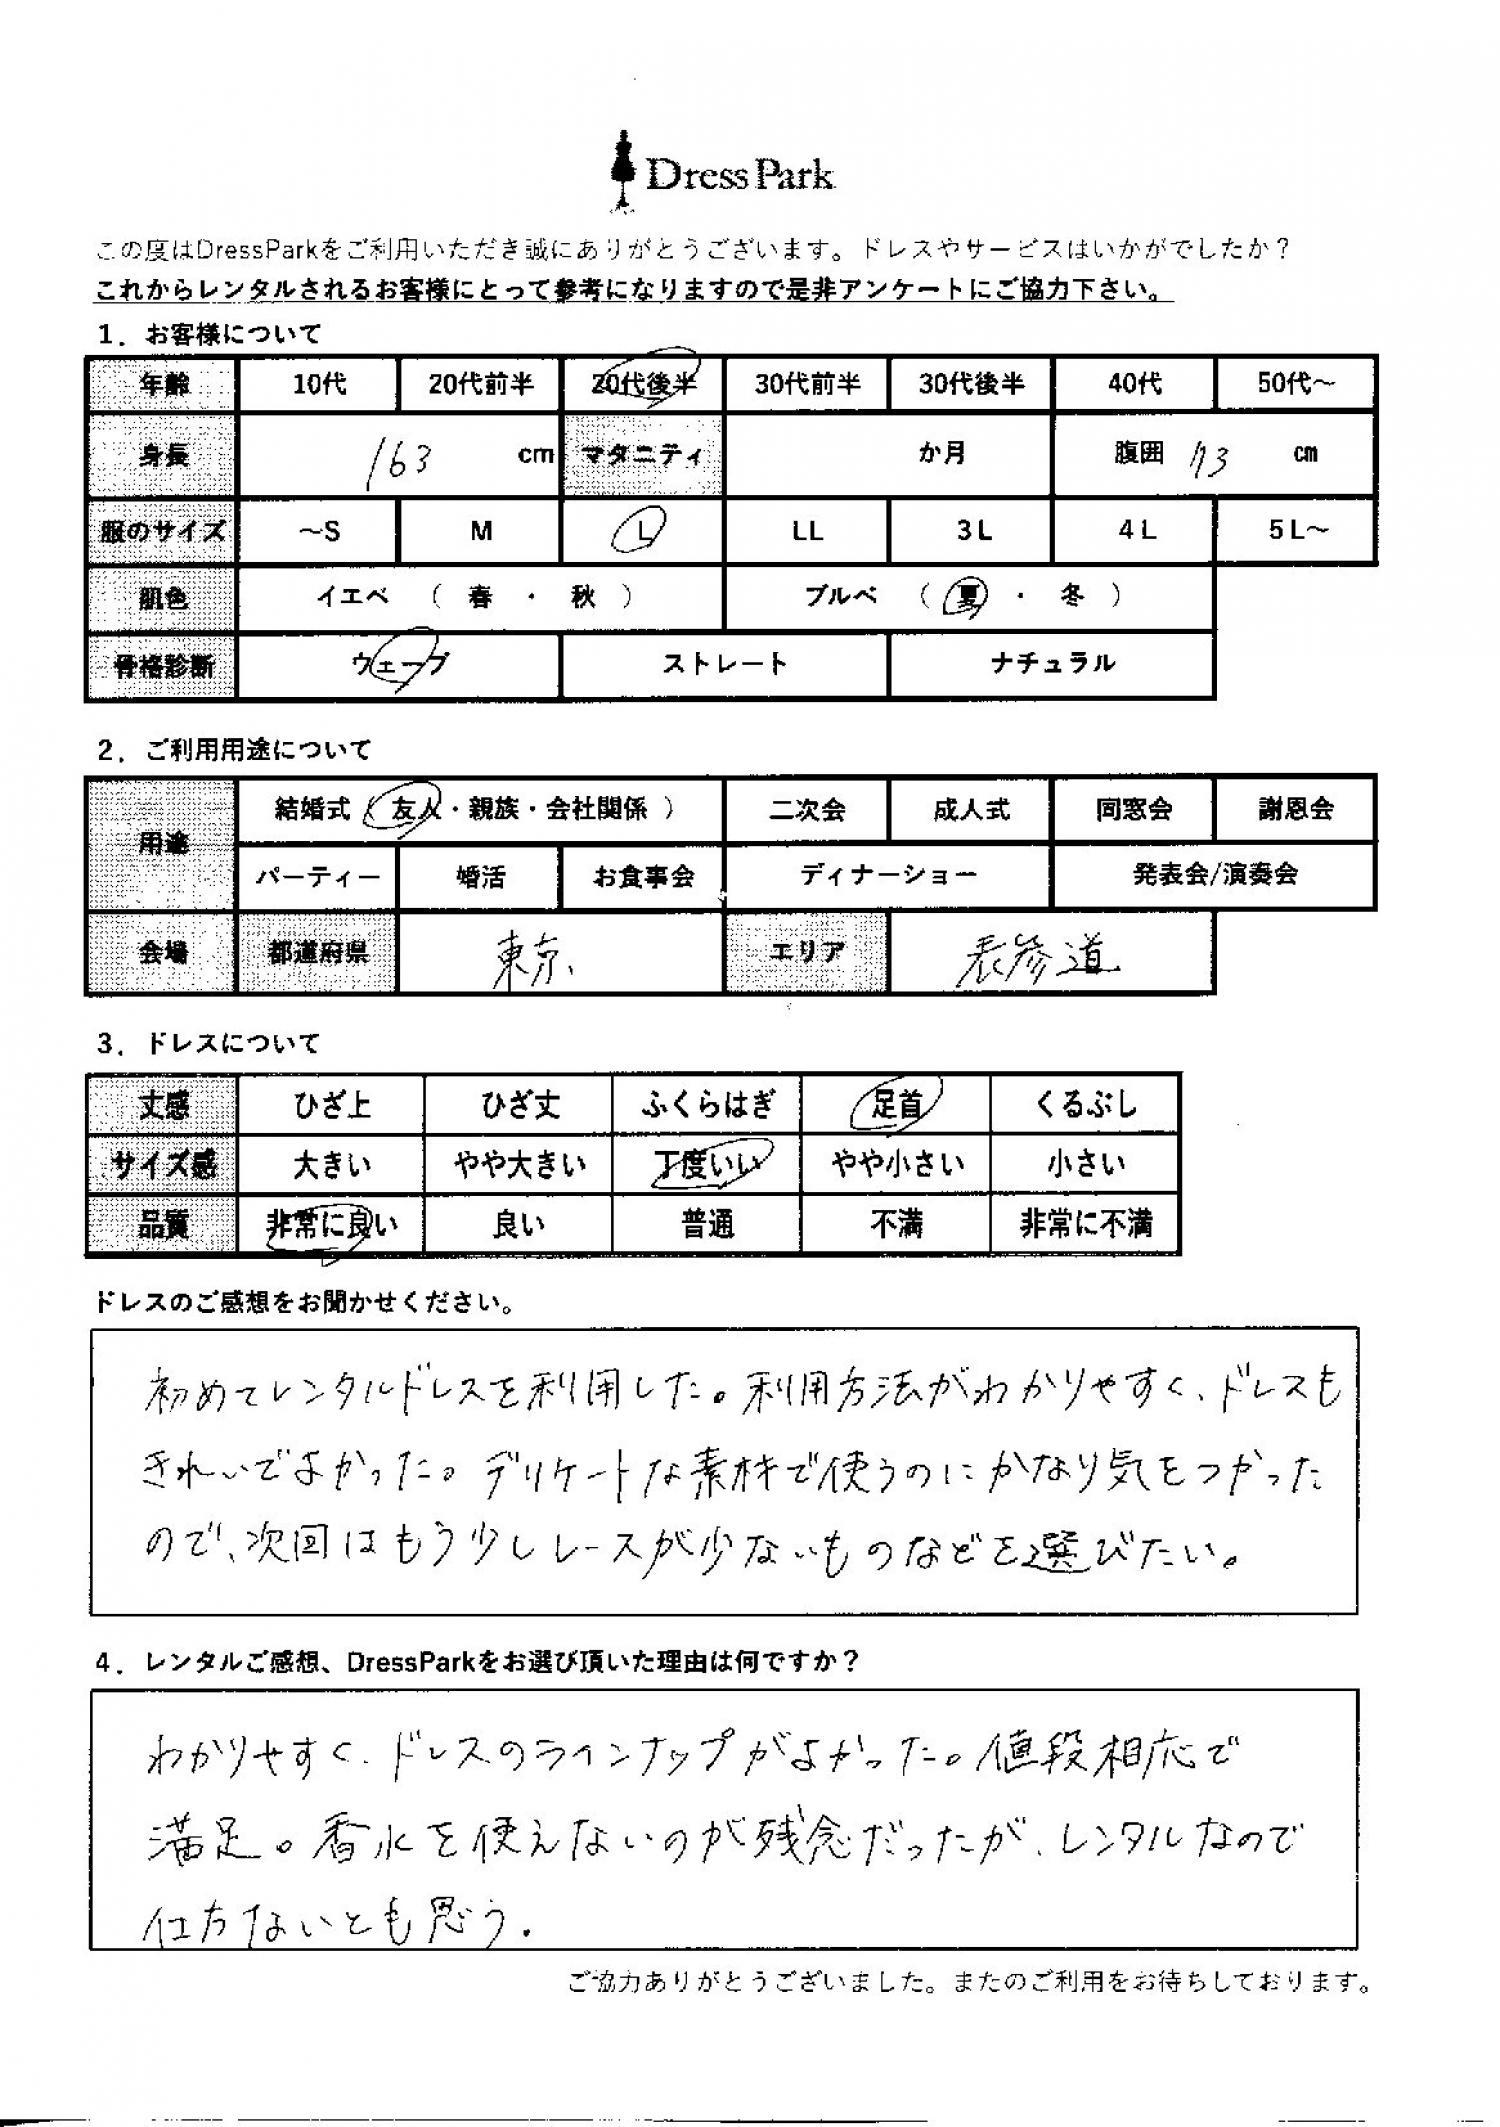 Dress Park
この度はDressParkをご利用いただき誠にありがとうございます。ドレスやサービスはいかがでしたか？
これからレンタルされるお客様にとって参考になりますので是非アンケートにご協力下さい。
1．お客様について
年齢 10代 20代前半 20代後半 30代前半 30代後半 40代 50代～
身長 163 cm マタニティ か月 腹囲 73 cm
服のサイズ ～S M L LL 3L 4L 5L～
肌色 イエベ（ 春 ・ 秋 ） ブルベ（ 夏 ・ 冬 ）
骨格診断 ウェーブ ストレート ナチュラル
2．ご利用用途について
用途 結婚式（ 友人・親族・会社関係 ） 二次会 成人式 同窓会 謝恩会
パーティー 婚活 お食事会 ディナーショー 発表会/演奏会
会場 都道府県 東京 エリア 表参道
3．ドレスについて
丈感 ひざ上 ひざ丈 ふくらはぎ 足首 くるぶし
サイズ感 大きい やや大きい 丁度いい やや小さい 小さい
品質 非常に良い 良い 普通 不満 非常に不満
ドレスのご感想をお聞かせください。
初めてレンタルドレスを利用した。利用方法がわかりやすく、ドレスも
きれいでよかった。デリケートな素材で使うのにかなり気をつかった
ので、次回はもう少しレースが少ないものなどを選びたい。
4．レンタルご感想、DressParkをお選び頂いた理由は何ですか？
わかりやすく、ドレスのラインナップがよかった。値段相応で
満足。香水を使えないのが残念だったが、レンタルなので
仕方ないとも思う.
ご協力ありがとうございました。またのご利用をお待ちしております。